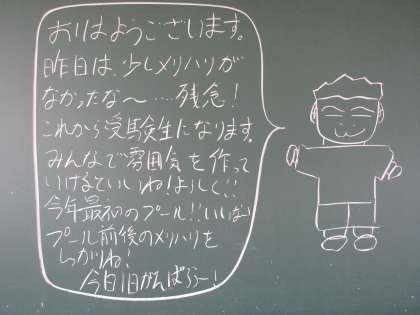 おはようございます。
昨日は、少しメリハリが
なかったな〜……残念！
これから受験生になります。
みんなで雰囲気を作って
いけるといいね！よろしく!!
今年最初のプール!!いいな！
プール前後のメリハリを
しっかりね！
今日1日がんばろう〜！